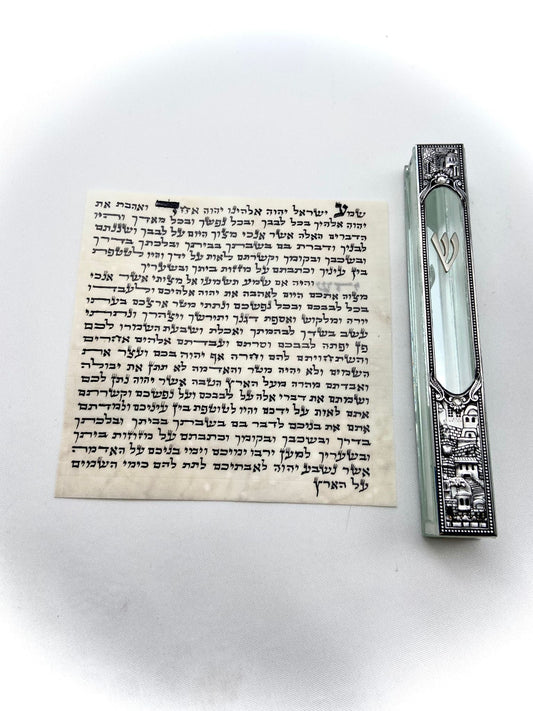 שמע ישראל יהוה אלהינו יהוה אחד ואהבת את
יהוה אלהיך בכל לבבך ובכל נפשך ובכל מאדך והיו
הדברים האלה אשר אנכי מצוך היום על לבבך ושננתם
לבניך ודברת בם בשבתך בביתך ובלכתך בדרך
ובשכבך ובקומך וקשרתם לאות על ידך והיו לטטפת
בין עיניך וכתבתם על מזזות ביתך ובשעריך
והיה אם שמע תשמעו אל מצותי אשר אנכי
מצוה אתכם היום לאהבה את יהוה אלהיכם ולעבדו
בכל לבבכם ובכל נפשכם ונתתי מטר ארצכם בעתו
יורה ומלקוש ואספת דגנך ותירשך ויצהרך ונתתי
עשב בשדך לבהמתך ואכלת ושבעת השמרו לכם
פן יפתה לבבכם וסרתם ועבדתם אלהים אחרים
והשתחויתם להם וחרה אף יהוה בכם ועצר את
השמים ולא יהיה מטר והאדמה לא תתן את יבולה
ואבדתם מהרה מעל הארץ הטבה אשר יהוה נתן לכם
ושמתם את דברי אלה על לבבכם ועל נפשכם וקשרתם
אתם לאות על ידכם והיו לטוטפת בין עיניכם ולמדתם
אתם את בניכם לדבר בם בשבתך בביתך ובלכתך
בדרך ובשכבך ובקומך וכתבתם על מזוזות ביתך
ובשעריך למען ירבו ימיכם וימי בניכם על האדמה
אשר נשבע יהוה לאבתיכם לתת להם כימי השמים
על הארץ
ש